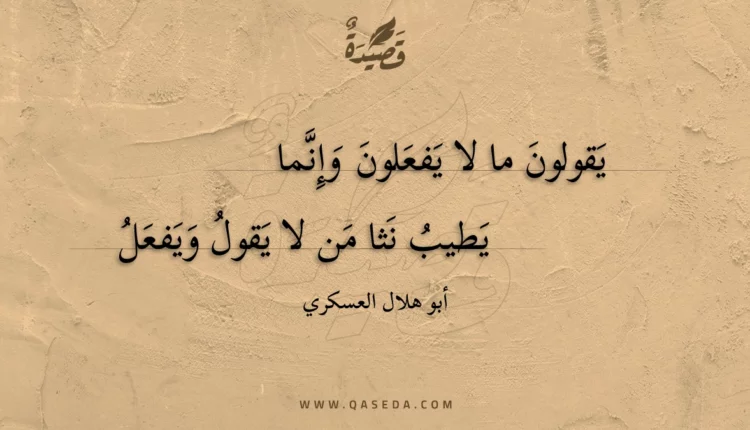 قَصِيْدَةٌ
يَقولونَ ما لا يَفعَلونَ وَإِنَّما
يَطيبُ نَثا مَن لا يَقولُ وَيَفعَلُ
أبو هلال العسكري
WWW.QASEDA.COM